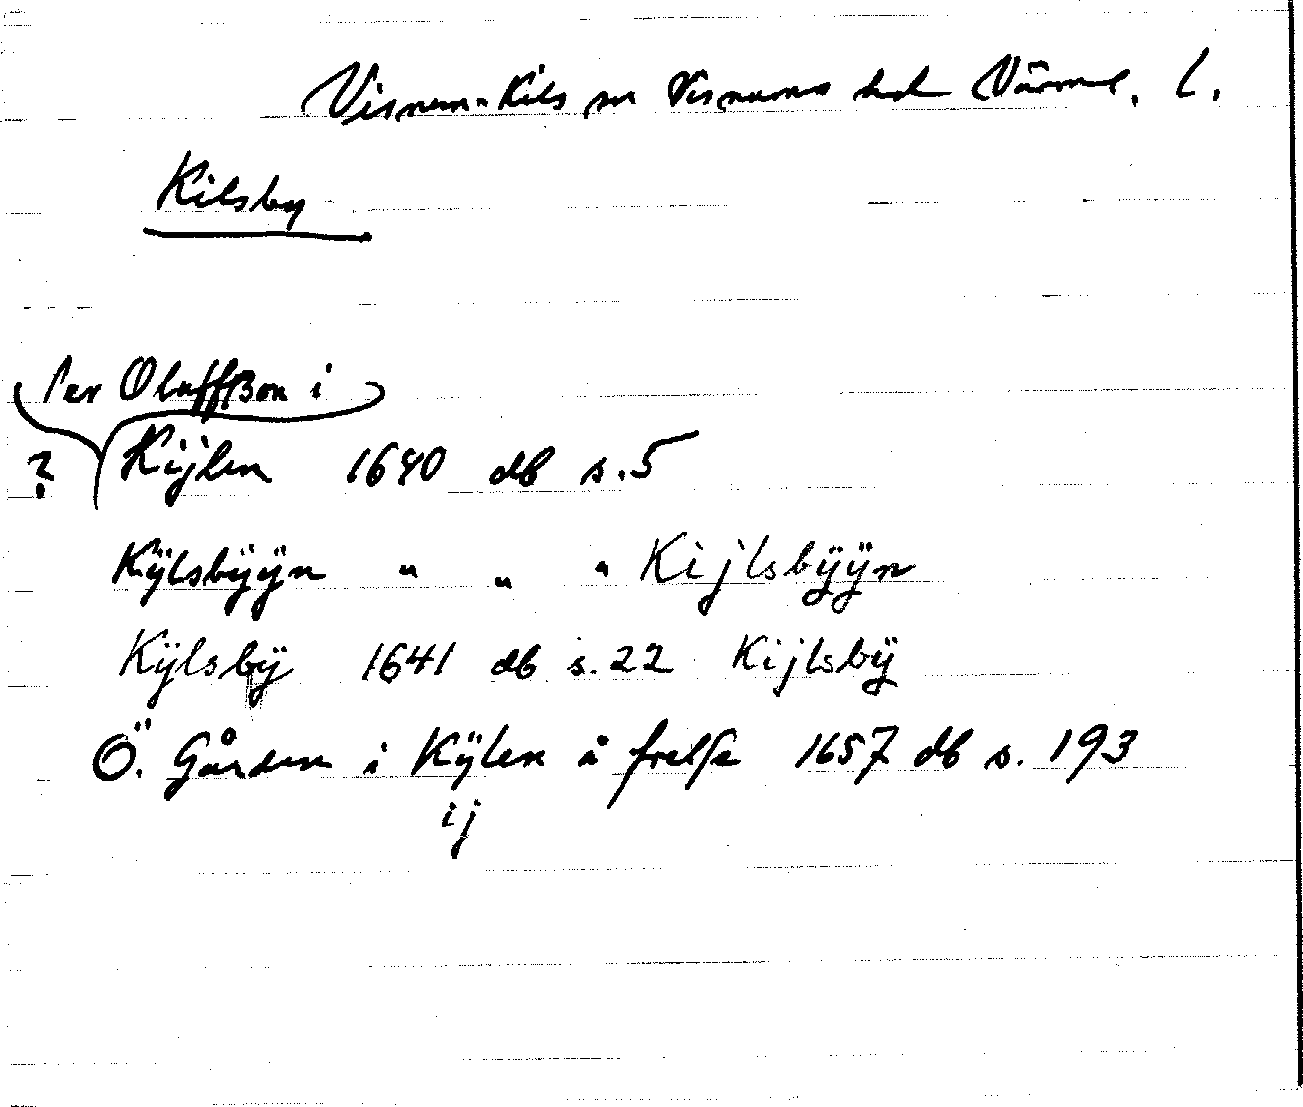 Visnum-Kils sn Visnums hd Värml. l.
Kilsby
Per Oluffßon i
? Kijlen 1640 db s. 5
Kÿlsbÿÿn " " " Kijlsbÿÿn
Kÿlsbÿ 1641 db s. 22 Kijlsbÿ
Ö. Gården i Kÿlen å frelse 1657 db s. 193
ij